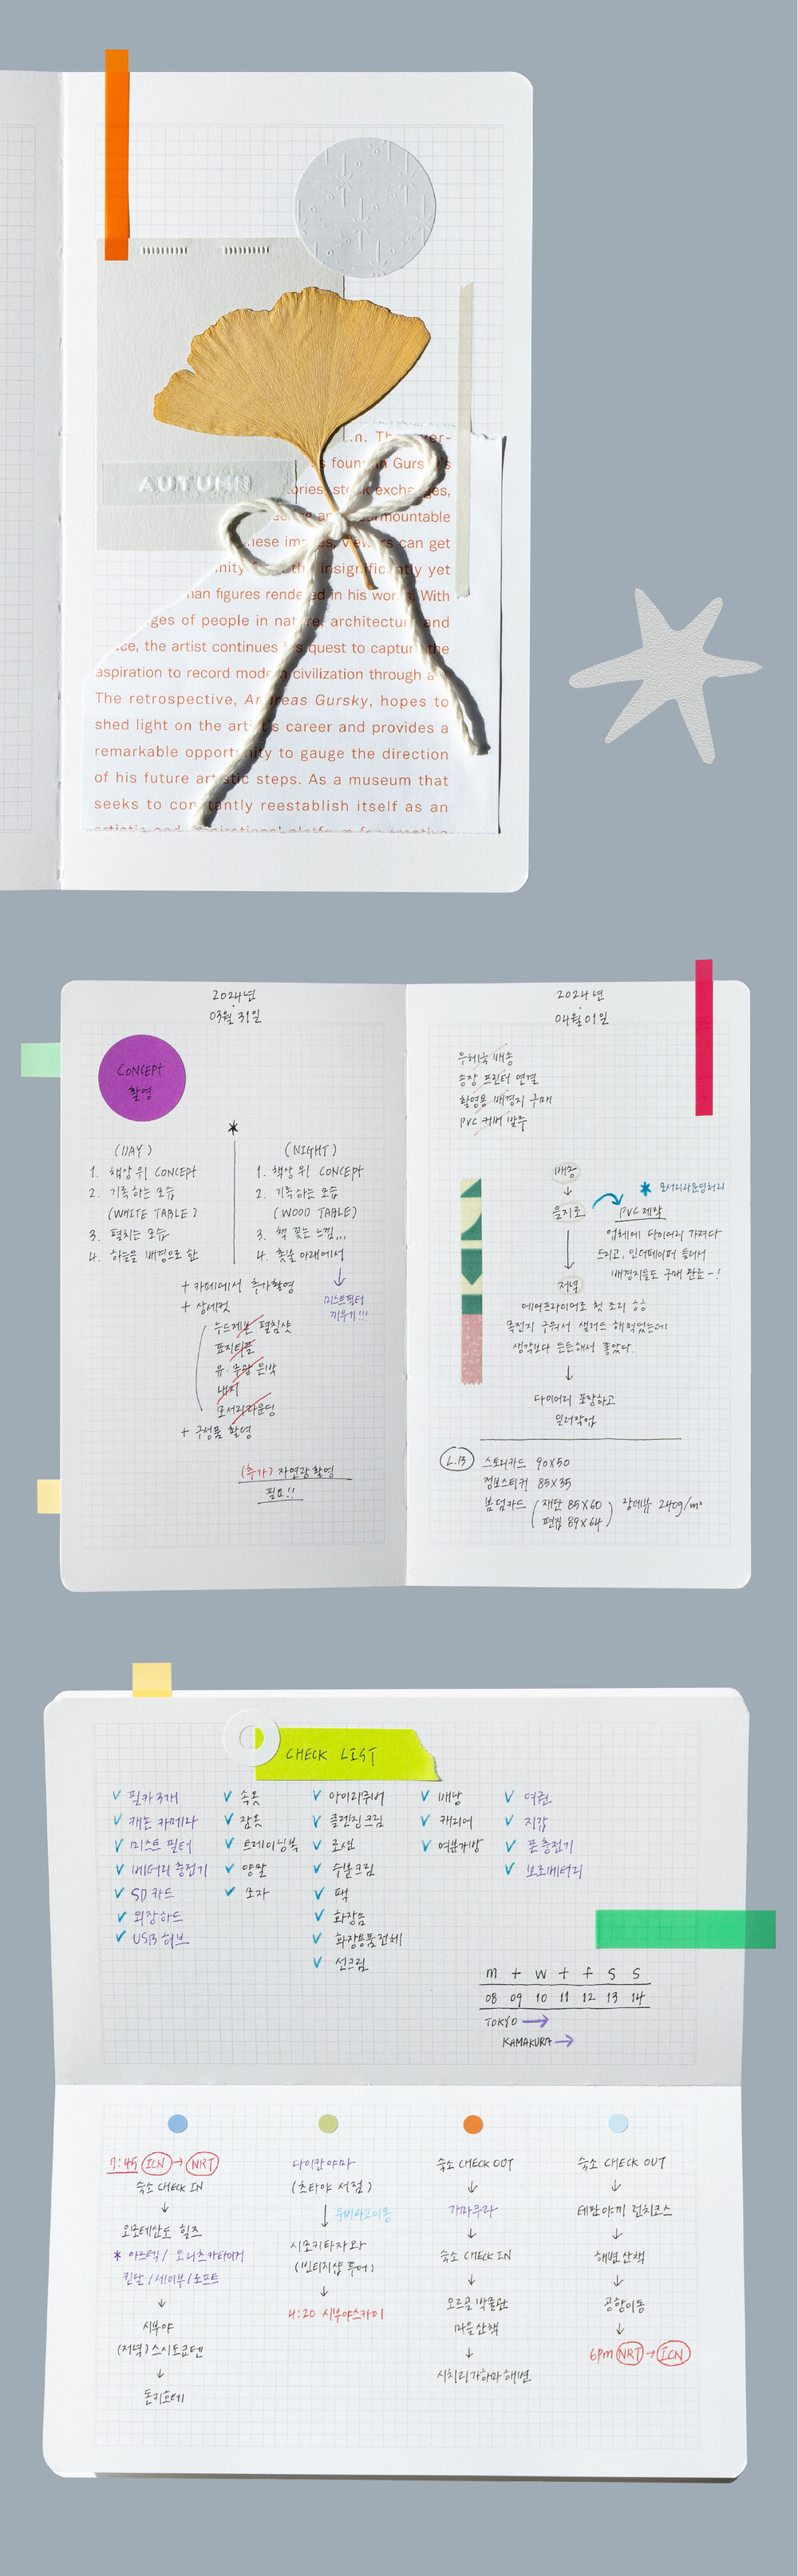 AUTUMN
n. The
s found in Gurs
tories, stock exchanges,
surmountable
hese images. Viewers can get
the insignificantly yet
man figures rendered in his works. With
ges of people in nature, architecture and
ce, the artist continues his quest to capture the
aspiration to record modern civilization through a
The retrospective, Andreas Gursky, hopes to
shed light on the artist's career and provides a
remarkable opportunity to gauge the direction
of his future artistic steps. As a museum that
seeks to constantly reestablish itself as an
2024년
03월 31일
CONCEPT
촬영
(DAY)
1. 책상 위 CONCEPT
2. 기록하는 모습
(WHITE TABLE)
3. 펼치는 모습
4. 하늘을 배경으로 한
(NIGHT)
1. 책상 위 CONCEPT
2. 기록하는 모습
(WOOD TABLE)
3. 책 꽂는 느낌,,,
4. 촛불 아래에서
미스트필터
끼우기!!!
+ 카페에서 추가촬영
+ 상세컷
누드제본 펼침샷
표지타공
유·무광 은박
내지
모서리라운딩
+ 구성품 촬영
(추가) 자연광 촬영
필요!!
2024년
04월 01일
우체국 배송
송장 프린터 연결
촬영용 배경지 구매
PVC 커버 발주
배송
을지로
PVC 제작
* 모서리라운딩처리
업체에 다이어리 가져다
드리고, 인더페이퍼 들러서
배경지들도 구매 완료-!
저녁
에어프라이어로 첫 조리 ㅎㅎ
목전지 구워서 샐러드 해먹었는데
생각보다 든든해서 좋았다.
다이어리 포장하고
밀러작업
L.13
스토리카드 90X50
정보스티커 85X35
봄 덤카드 (재단 85X60
편집 89X64) 랑데뷰 240g/m²
CHECK LIST
필카 3개
캐논 카메라
미스트 필터
배터리 충전기
SD 카드
외장하드
USB 허브
속옷
잠옷
트레이닝복
양말
모자
아이리무버
클렌징크림
로션
수분크림
팩
화장솜
화장용품전체
선크림
배낭
캐리어
여분가방
여권
지갑
폰 충전기
보조배터리
m t w t f s s
08 09 10 11 12 13 14
TOKYO →
KAMAKURA →
7:45 ICN → NRT
숙소 CHECK IN
↓
오모테산도 힐즈
* 아즈텍 / 오니츠카타이거
킨달 / 세이부 / 로프트
↓
시부야
(저녁) 스시도쿄텐
↓
돈키호테
다이칸야마
(츠타야 서점)
↓ 우버타고이동
시모키타자와
(빈티지샵 투어)
↓
4:20 시부야스카이
숙소 CHECK OUT
↓
가마쿠라
↓
숙소 CHECK IN
↓
오르골 박물관
마을산책
↓
시치리가하마 해변
숙소 CHECK OUT
↓
테판야끼 런치코스
↓
해변 산책
↓
공항이동
↓
6pm NRT → ICN